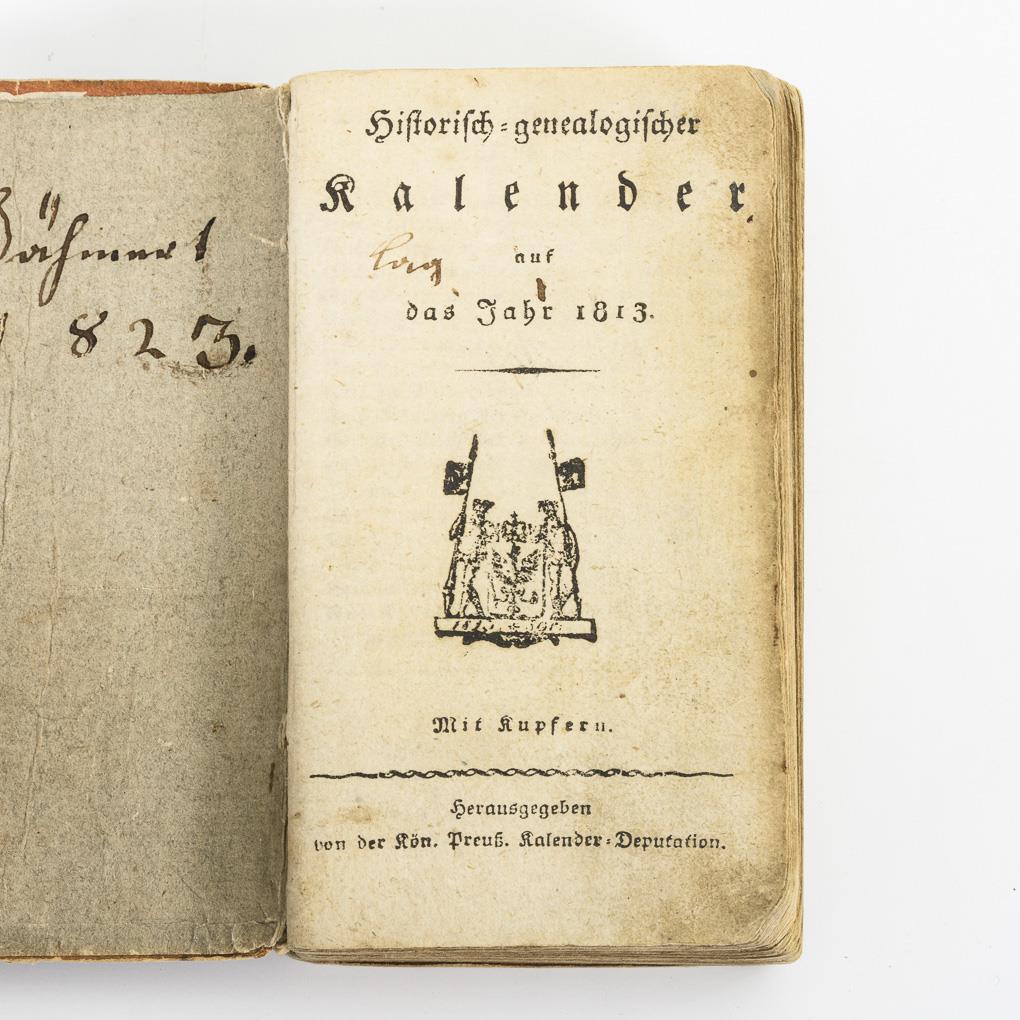 Böhmert
1823.
Historisch-genealogischer
Kalender
auf
das Jahr 1813.
Mit Kupfern.
Herausgegeben
von der Kön. Preuß. Kalender-Deputation.